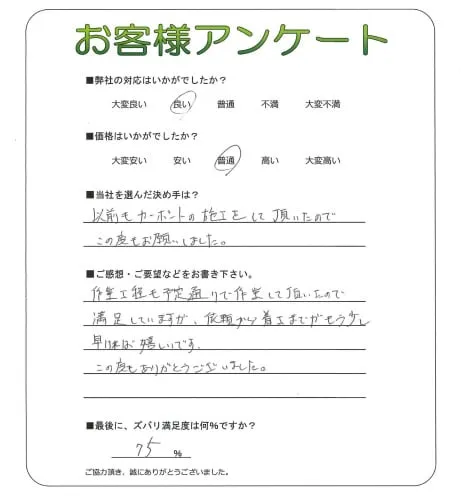 お客様アンケート
■弊社の対応はいかがでしたか?
大変良い 良い 普通 不満 大変不満
■価格はいかがでしたか?
大変安い 安い 普通 高い 大変高い
■当社を選んだ決め手は?
以前もカーポートの施工をして頂いたので
この度もお願いしました。
■ご感想・ご要望などをお書き下さい。
作業工程も予定通りで作業して頂いたので
満足していますが、依頼から着工までがもう少し
早ければ嬉しいです。
この度もありがとうございました。
■最後に、ズバリ満足度は何%ですか?
75 %
ご協力頂き、誠にありがとうございました。